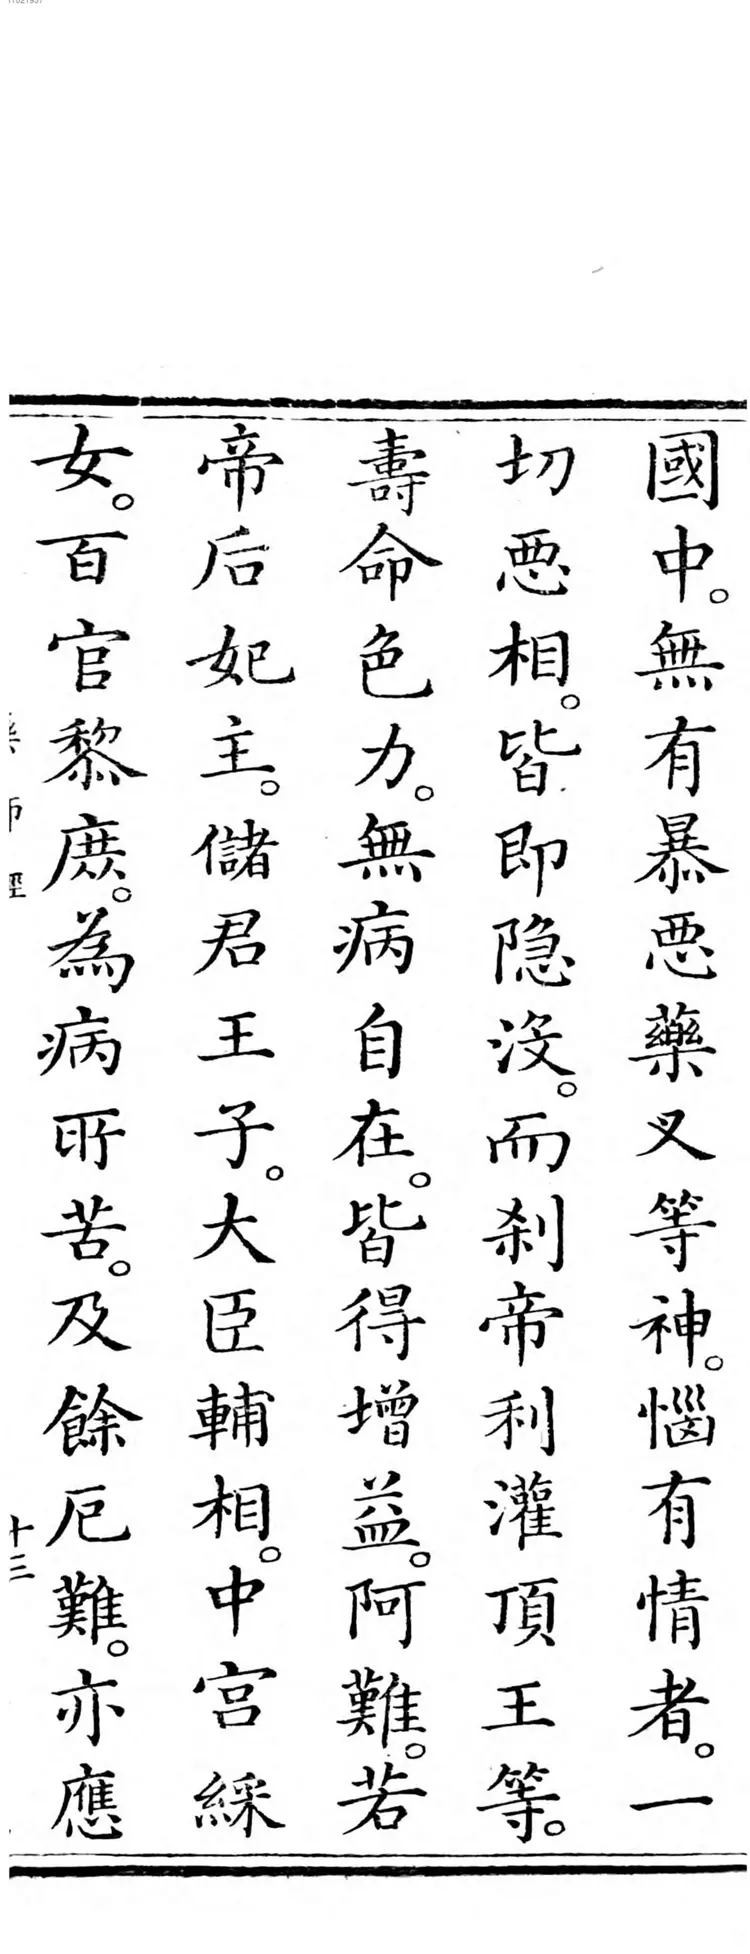 國中。無有暴惡藥叉等神。惱有情者。一
切惡相。皆即隱沒。而剎帝利灌頂王等。
壽命色力。無病自在。皆得增益。阿難。若
帝后妃主。儲君王子。大臣輔相。中宮綵
女。百官黎庶。為病所苦。及餘厄難。亦應
藥師經
十三